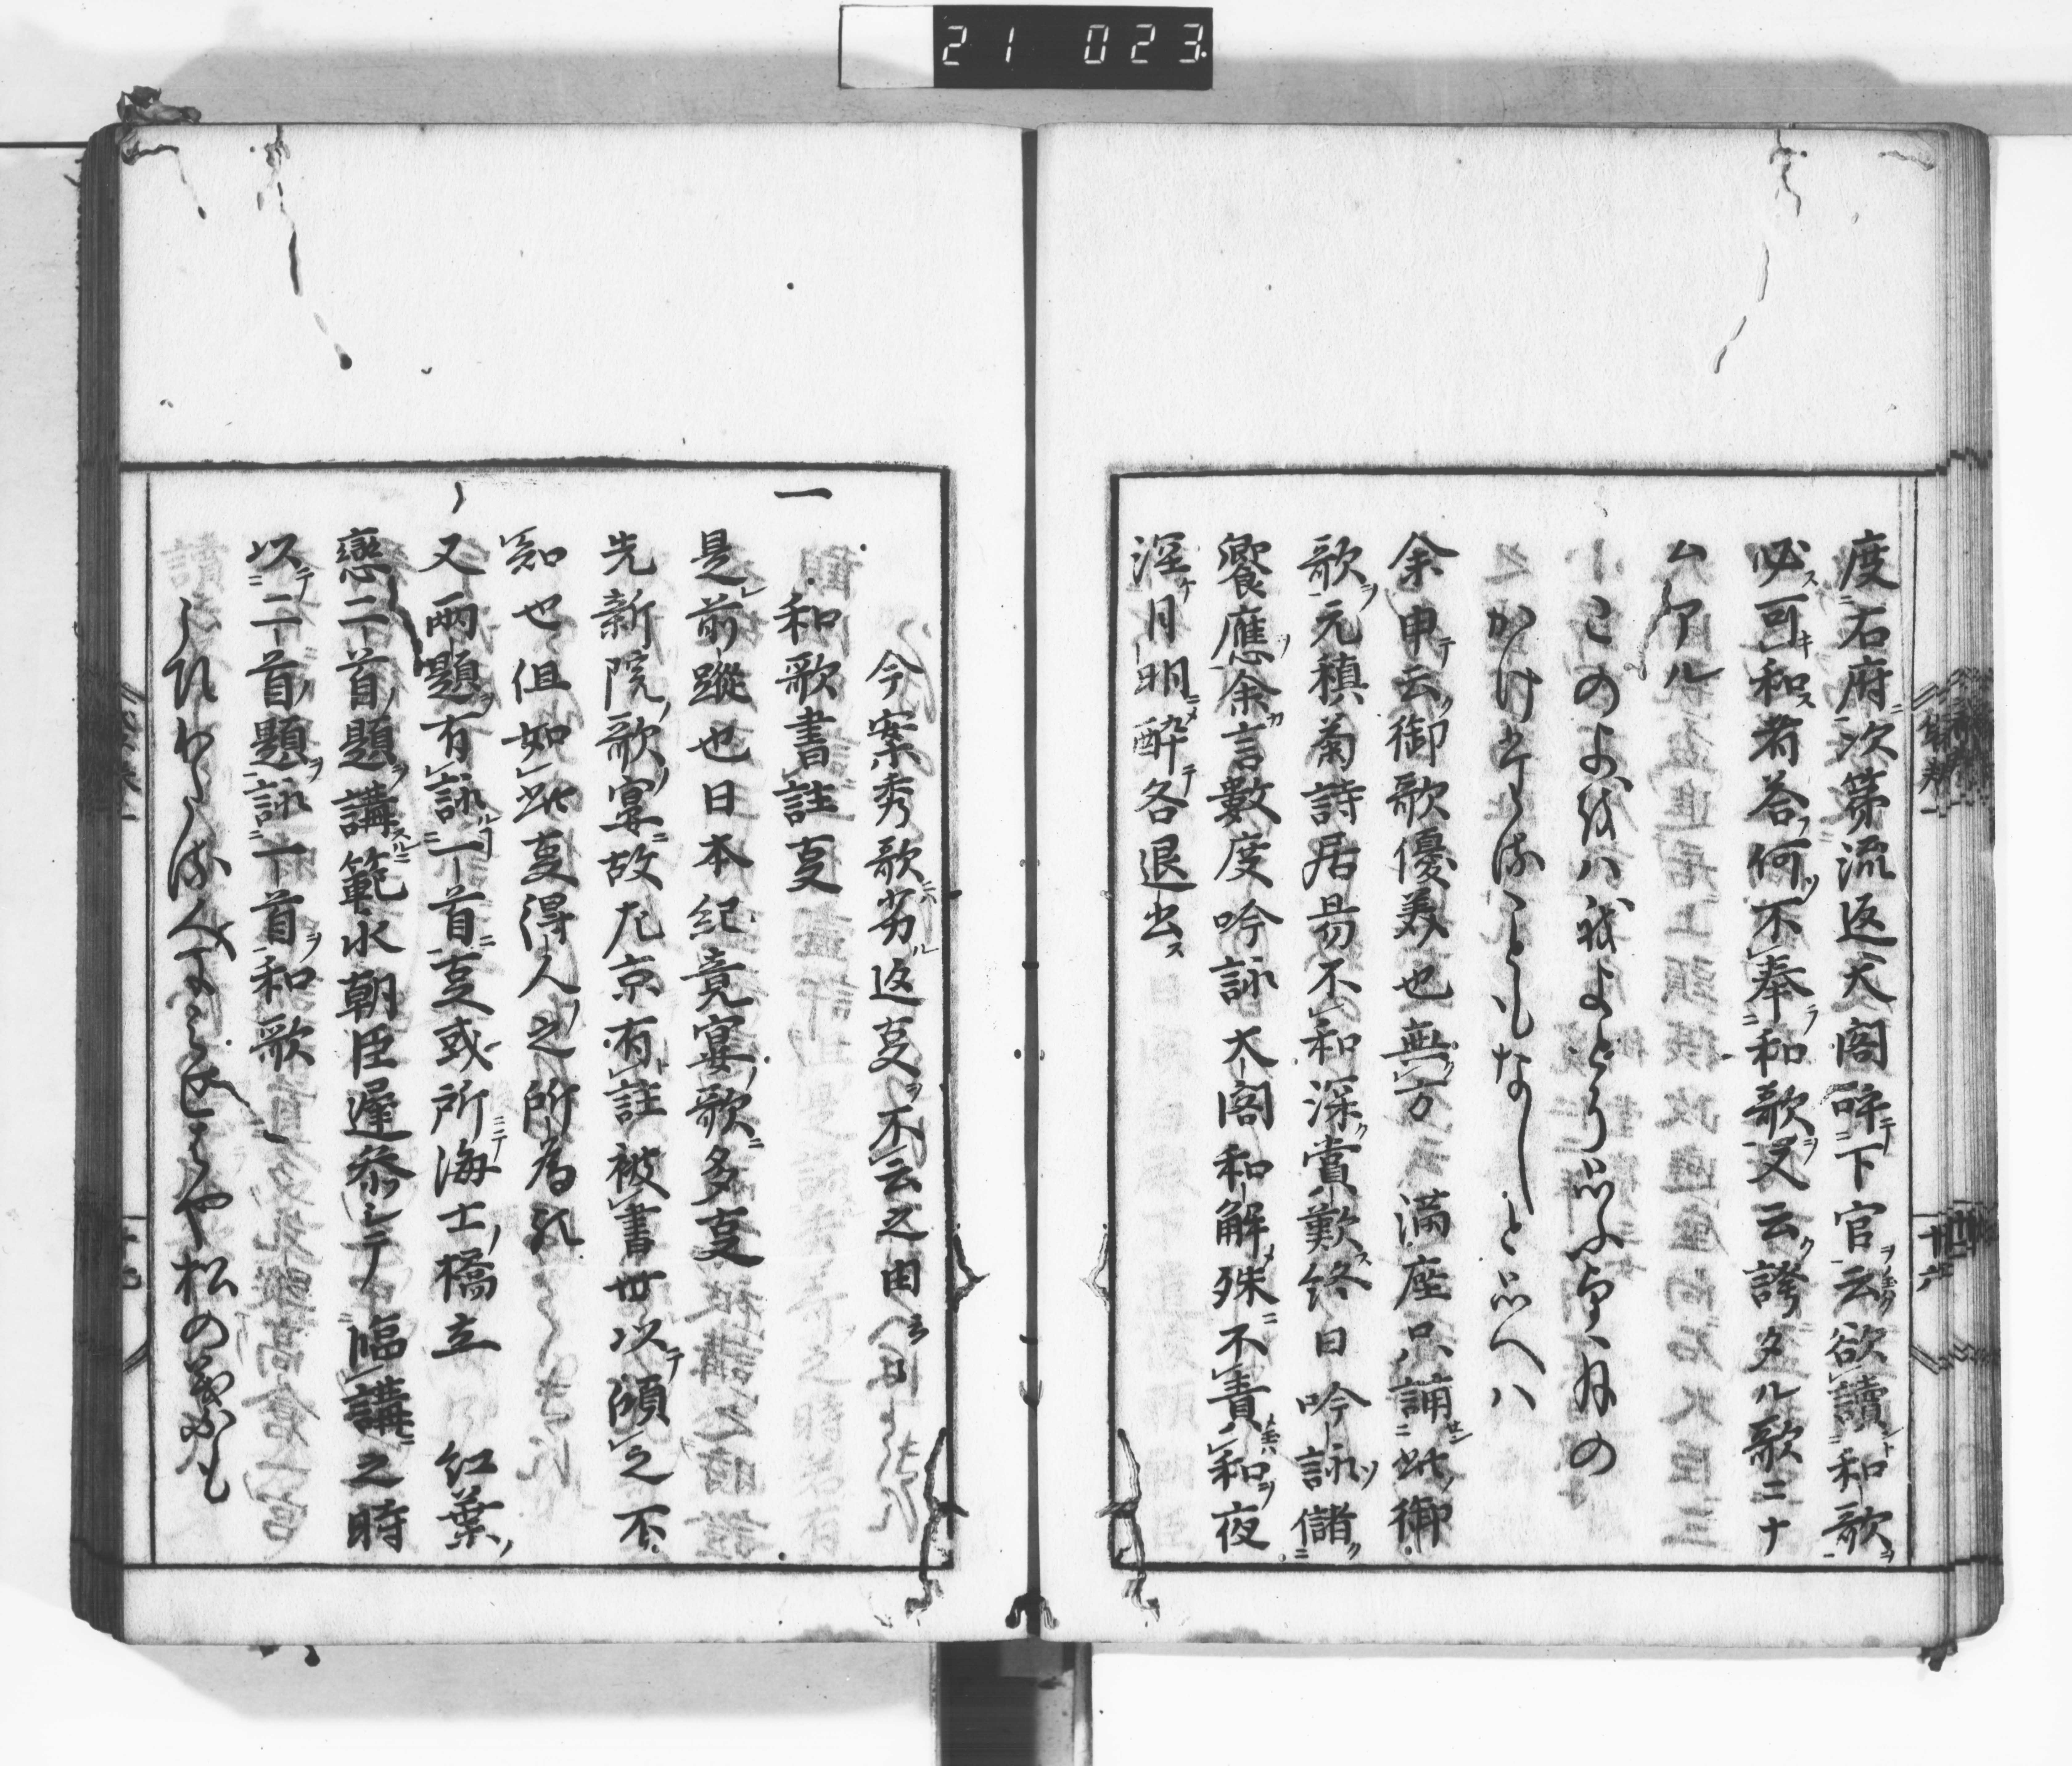 21 023
度右府次第流返太閤呼下官云欲讀和歌
必可和者答何不奉和歌又云誇タル歌ニナ
ムアル
このよをハ我よとそ思ふ望月の
かけたることもなしと思へハ
余申云御歌優美也無方 満座只誦此御
歌元稹菊詩居易不和深賞歎終日吟詠儲
饗應余言數度吟詠太閤和解殊不責和夜
深月明酔各退出ス
今案秀歌劣返㕝不云之由
一 和歌書註㕝
是前蹤也日本紀竟宴歌多㕝
先新院歌宴故左京有註被書世以傾之不
知也但如此㕝得人之所為歟
又兩題有詠一首㕝或所海士橋立 紅葉
戀二首題講範永朝臣遅参シテ臨講之時
以二首題詠一首和歌
こひわたる人にみせはや松の葉も